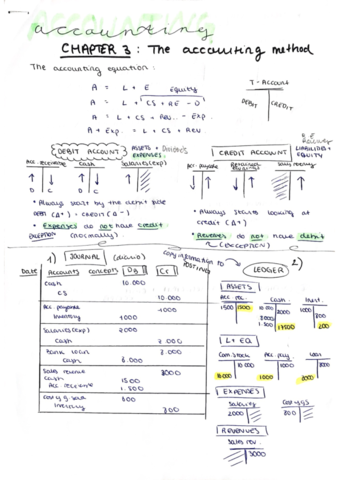 accounting
CHAPTER 3 : The accounting method
The accounting equation :
A = L + E
Equity
A = L + CS + RE - D
A = L + CS + Rev. - Exp.
A + Exp. = L + CS + Rev
T - Account
DEBIT
CREDIT
DEBIT ACCOUNT
ASSETS + Dividends
EXPENSES.
CREDIT ACCOUNT
LIABILITIES +
EQUITY
Acc. receivable
Cash
Salaries (exp)
Acc. payable
Sales revenue
D C
D C
• Always start by the debit side
DEBIT (Δ+) = CREDIT (Δ-)
• Expenses do not have credit
EXCEPTION (normally)
• Always starts looking at
credit (Δ+)
• Revenues do not have debit
(EXCEPTION)
1) JOURNAL
copy information to
POSTING
LEDGER 2)
Date
Accounts concepts
Dg
Cr
Cash 10.000
CS 10.000
Acc payable 1000
Inventory 1000
Salaries (exp) 2000
Cash 2.000
Bank loan 8.000
Cash 8.000
Sales revenue 3000
Cash 1500
Acc receivable 1.500
Cost g. sold 800
Inventory 800
ASSETS
Acc rec.
Cash
Invent.
1500
1500
10.000
2000
1000
8000
8000
1.500
800
L + EQ
Com. stock
Acc. pay
Loan
10.000
10.000
1000
1000
8000
8000
EXPENSES
Salaries
Cost g s
2000
800
REVENUES
Sales rev.
3000